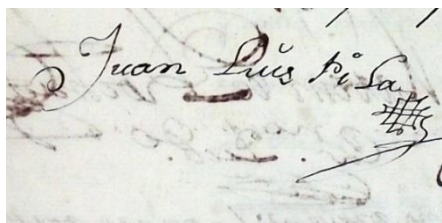 Juan Luis Pi Sa